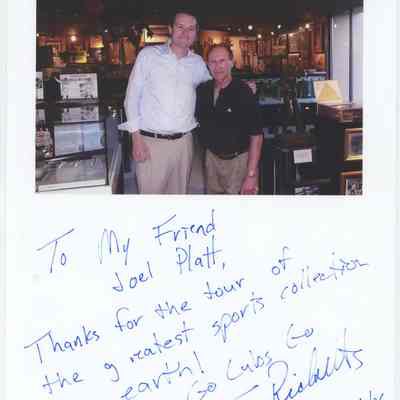 To My Friend
Joel Platt,
Thanks for the tour of
the greatest sports collection
earth!
Go Cubs Go
Ricketts